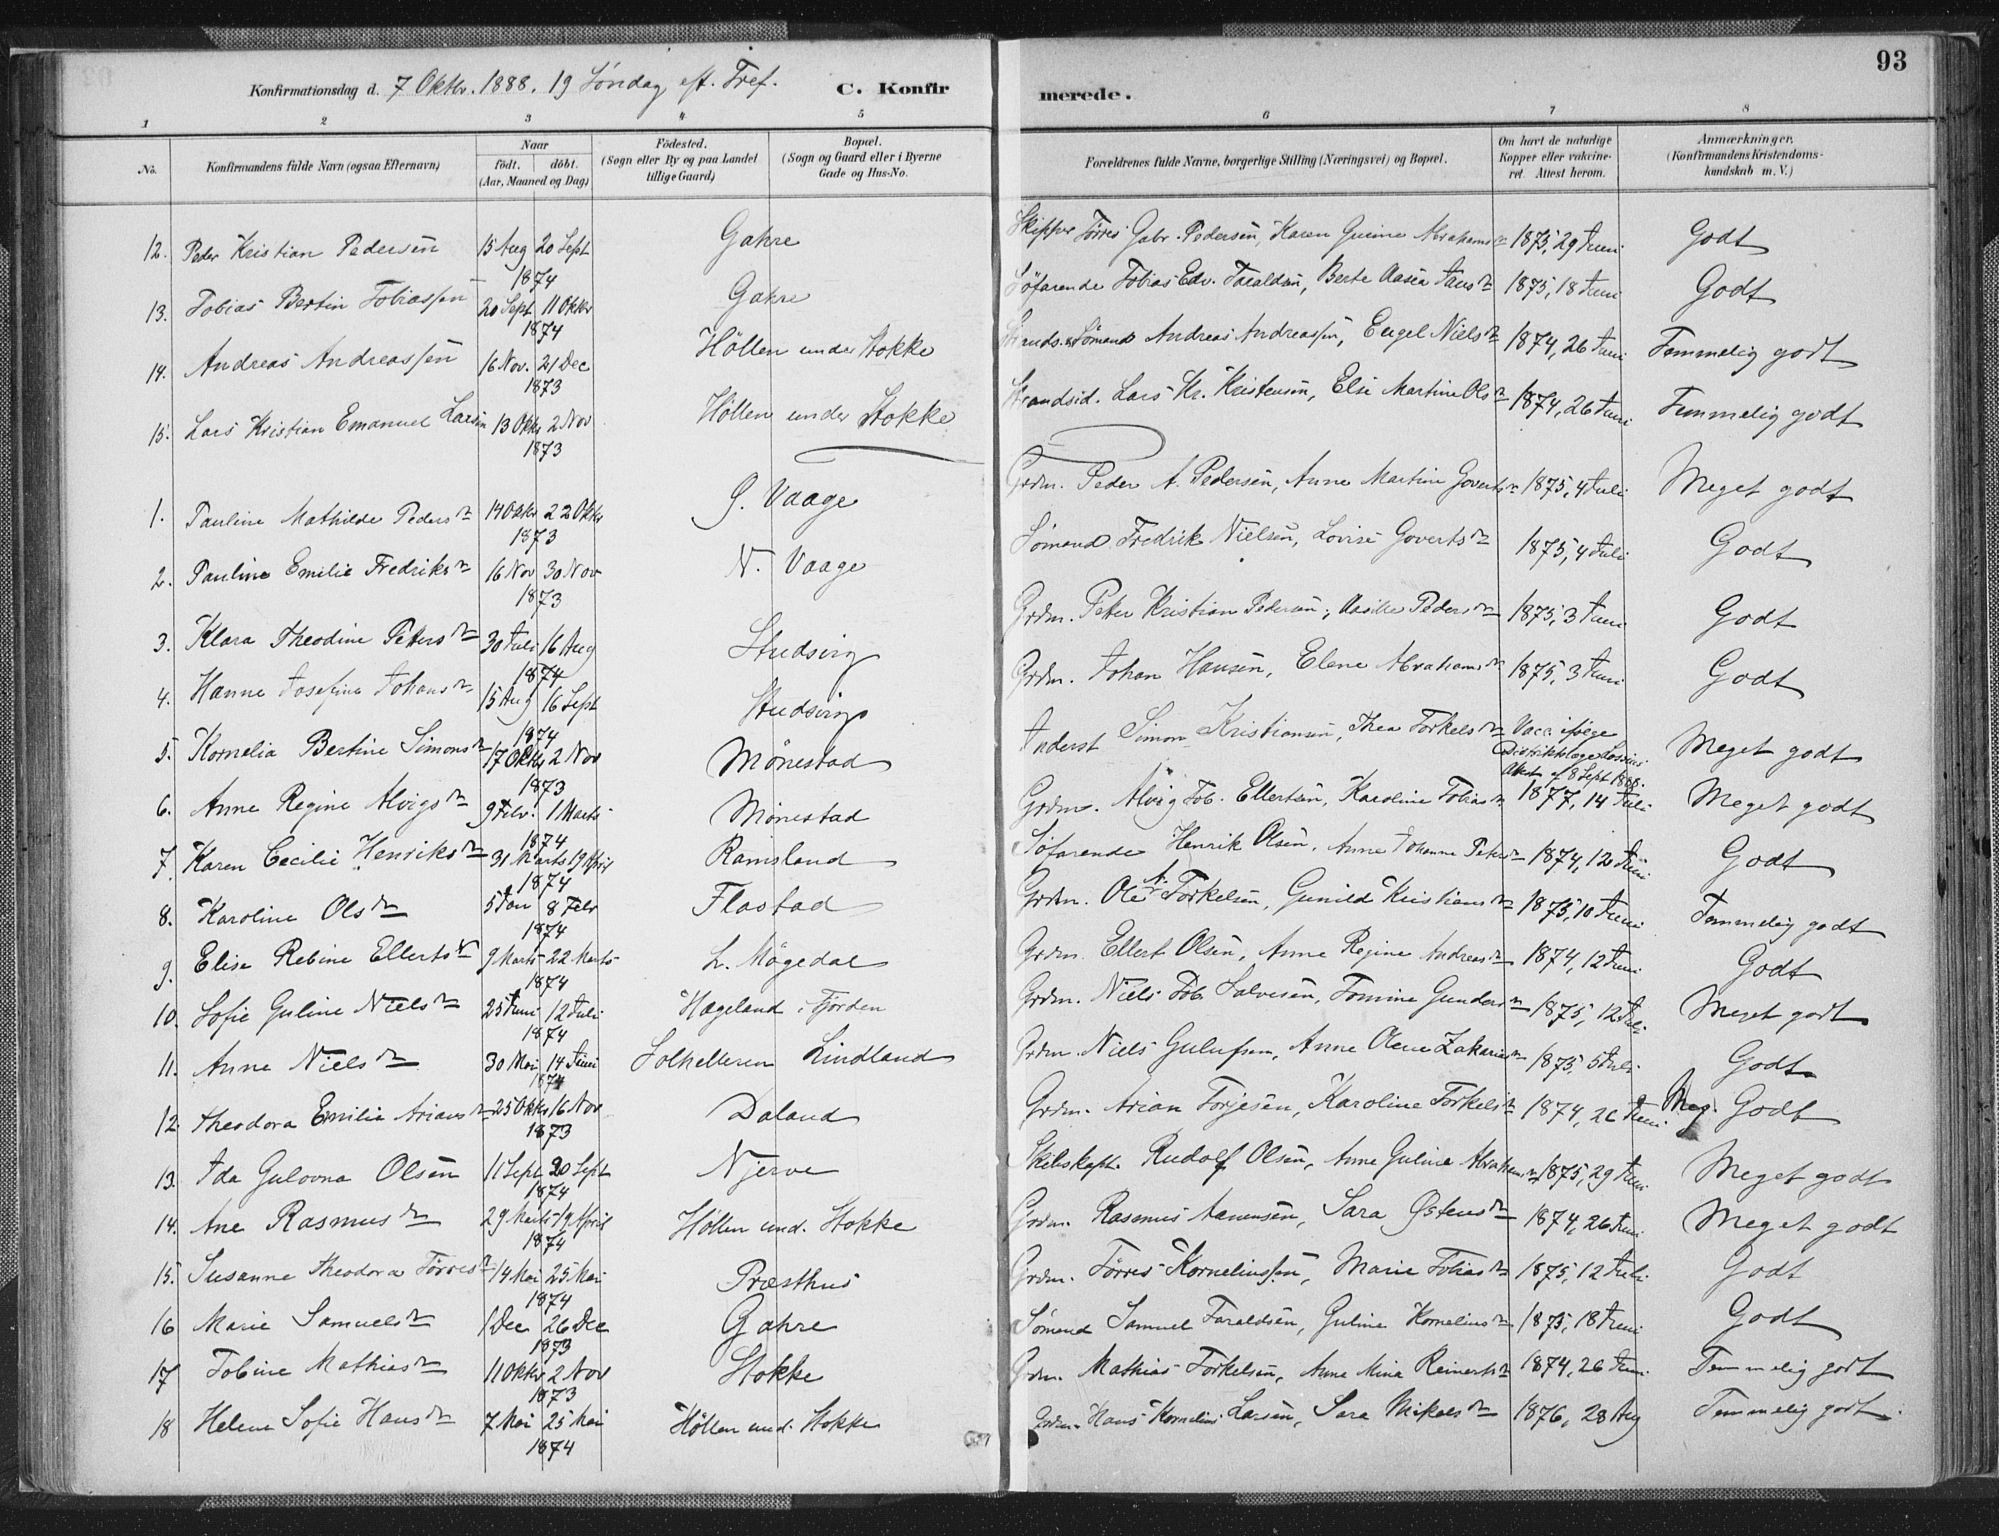 93
Konfirmationsdag d. 7 Oktbr. 1888. 19 Søndag eft. Tref. C. Konfirmerede.
1 2 3 4 5 6 7 8
No. Konfirmandens fulde Navn (ogsaa Efternavn) Naar födt. döbt. (Aar, Maaned og Dag) Födested. (Sogn eller By og paa Landet tillige Gaard) Bopæl. (Sogn og Gaard eller i Byerne Gade og Hus-No. Forældrenes fulde Navne, borgerlige Stilling (Næringsvei) og Bopæl. Om havt de naturlige Kopper eller vakcineret. Attest herom. Anmærkninger. (Konfirmandens Kristendomskundskab m. V.)
12. Peder Kristian Pedersen 15 Aug 20 Sept 1874 Gahre Skipper Tørres Gabr. Pedersen, Karen Gurine Abrahamsdr 1875, 29 Juni Godt
13. Tobias Bertin Tobiassen 20 Sept 11 Oktbr 1874 Gahre Söfarende Tobias Edv. Taraldsen, Berte Aasea Jansdr 1875, 18 Juni Godt
14. Andreas Andreassen 16 Nov. 21 Dec 1873 Höllen under Stokke Sømand Andreas Andreassen, Engel Nielsdr 1874, 26 Juni Temmelig godt
15. Lars Kristian Emanuel Larsen 13 Oktbr 2 Nov 1873 Höllen under Stokke Strandsid. Lars Kr. Kristensen, Else Martine Olsdr 1874, 26 Juni Temmelig godt
1. Pauline Mathilde Pedersdr 14 Oktbr 22 Oktbr 1873 S. Vaage Grdm. Peder A. Pedersen, Anne Martine Govertsdr 1875, 4 Juli Meget godt
2. Pauline Emilie Fredriksdr 16 Nov 30 Nov 1873 N. Vaage Sømand Fredrik Nielsen, Lovise Govertsdr 1875, 4 Juli Godt
3. Klara Theodine Petersdr 30 Juli 16 Aug 1874 Studsvig Grdm. Peter Kristian Pedersen, Aasille Pedersdr 1875, 3 Juni Godt
4. Hanne Josefine Johansdr 15 Aug 16 Sept 1874 Studsvig Grdm. Johan Hansen, Elene Abrahamsdr 1875, 3 Juni Godt
5. Kornelia Bertine Simonsdr 17 Oktbr 2 Nov 1873 Mönestad Inderst Simon Kristiansen, Thea Torkelsdr Vacc. ifölge Distriktslæge Attest af 8 Sept 1888. Meget godt
6. Anne Regine Alvigsdr 9 Febr. 1 Marts 1874 Mönestad Grdm. Alvig Tob. Ellertsen, Karoline Tobiasdr 1877, 14 Juli Meget godt
7. Karen Cecilie Henriksdr 31 Marts 19 April 1874 Ramsland Söfarende Henrik Olsen, Anne Johanne Petersdr 1874, 12 Juni Godt
8. Karoline Olsdr 5 Jan 8 Febr 1874 Flostad Grdm. Ole A. Torkelsen, Gunild Kristiansdr 1875, 10 Juni Temmelig godt
9. Elise Rebine Ellertsdr 9 Marts 22 Marts 1874 L. Mögedal Grdm. Ellert Olsen, Anne Regine Andreasdr 1874, 12 Juni Godt
10. Sofie Guline Nielsdr 25 Juni 12 Juli 1874 Hægeland i Fjorden Grdm. Niels Tob. Salvesen, Tomine Gundersdr 1875, 12 Juli Meget godt
11. Anne Nielsdr 30 Mai 14 Juni 1874 Solhelleren Lindland Grdm. Niels Gulufsen, Anne Olene Zakariasdr 1875, 5 Juli Godt
12. Theodora Emilie Ariansdr 25 Oktbr 16 Nov 1873 Daland Grdm. Arian Torjesen, Karoline Torkelsdr 1874, 26 Juni Meg. Godt
13. Ida Gulovna Olsen 11 Sept 20 Sept 1874 Njerve Skibskapt. Rudolf Olsen, Anne Guline Abrahamsdr 1875, 29 Juni Meget godt
14. Ane Rasmusdr 29 Marts 19 April 1874 Höllen und. Stokke Grdm. Rasmus Aanensen, Sara Østensdr 1874, 26 Juni Meget godt
15. Susanne Theodora Törresdr 14 Mai 25 Mai 1874 Præsthus Grdm. Törres Korneliussen, Marie Tobiasdr 1875, 12 Juli Godt
16 Marie Samuelsdr 1 Dec 26 Dec 1873 Gahre Sømand Samuel Taraldsen, Guline Korneliusdr 1875, 18 Juni Godt
17 Tobine Mathiasdr 11 Oktbr 2 Nov 1873 Stokke Grdm. Mathias Torkelsen, Anne Mina Reinertsdr 1874, 26 Juni Temmelig godt
18 Helene Sofie Hansdr 7 Mai 25 Mai 1874 Höllen und. Stokke Grdm. Hans Kornelius Larsen, Sara Mikalsdr 1876, 28 Aug Temmelig godt.